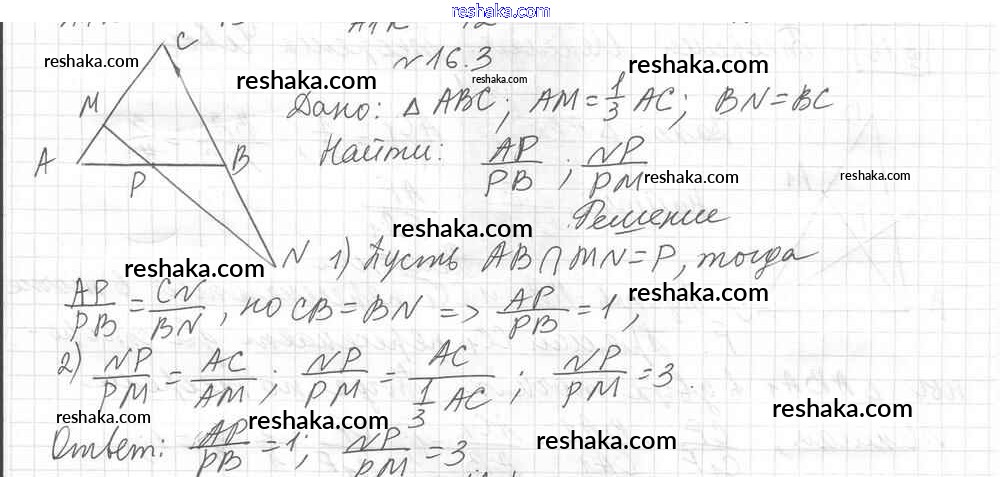 reshaka.com
№16.3
reshaka.com reshaka.com reshaka.com reshaka.com
Дано: △ ABC; AM = 1/3 AC; BN = BC
Найти: AP/PB; NP/PM
reshaka.com reshaka.com
C
M
A
P
B
N
Решение
reshaka.com
1) Пусть AB∩MN=P, тогда
reshaka.com
AP/PB = CN/BN, но CB=BN => AP/PB = 1;
reshaka.com
2) NP/PM = AC/AM; NP/PM = AC/(1/3 AC); NP/PM = 3.
reshaka.com reshaka.com reshaka.com
Ответ: AP/PB = 1; NP/PM = 3
reshaka.com